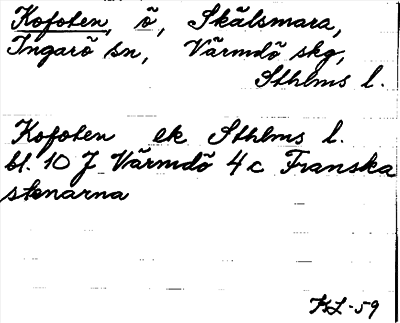 Kofoten, ö, Skälsmara,
Ingarö sn, Värmdö skg,
Sthlms l.
Kofoten ek Sthlms l.
bl. 10 J Värmdö 4 c Franska
stenarna
KL-59